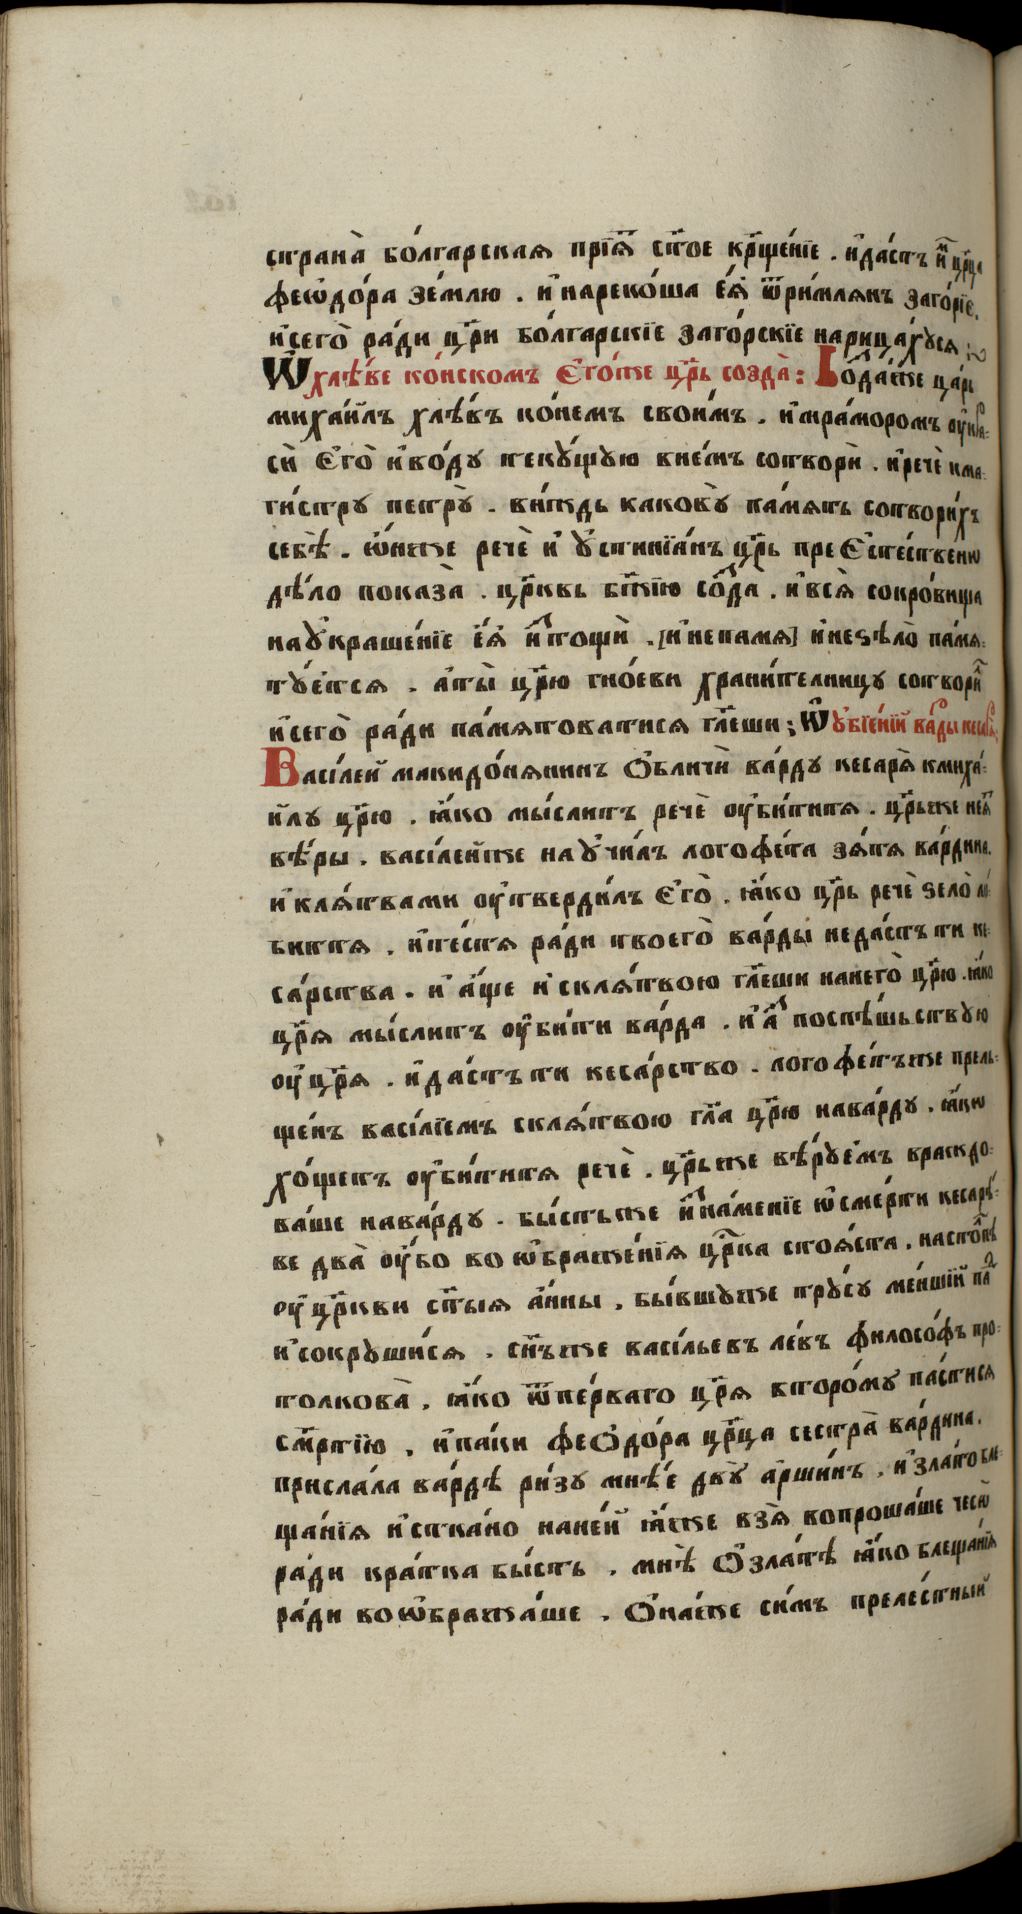 страна̀ бо́лгарская прїѧ̑ ст҃ое кр҃ще́нїе . и҆да́стъ и҆̀м цр҃ца
феѡдо́ра зе́млю . и҆нареко́ша є҆ѧ̀ ѿримлянъ заго́рїе .
и҆сего̀ ра́ди цр҃и бо́лгарскїе заго́рскїе нарица́хꙋся :
Ѡ҆хлѣ́ве ко́нскомъ Є҆го́же цр҃ь созда̀ : Созда́же ца́рь
миха́илъ хлѣ́въ ко́немъ свои́мъ . и҆мра́моромъ оу҆кра-
сѝ Є҆го̀ и҆во́ду текꙋ́щꙋю вне́мъ сотворѝ . и҆речѐ кма-
ги́стру петрꙋ̀ . ви́ждь каковꙋ̀ па́мять сотвори́хъ
себѣ̀ . ѡ҆́нже речѐ и҆ ꙋ҆стинїа́нъ цр҃ь преЄсте́ственно
дѣ́ло показа̀ . цр҃ковь бж҃їю созда̀ . и҆вся̀ сокро́вища
наꙋ҆краше́нїе є҆ѧ̀ и҆стощѝ . [и҆непамя] и҆неѕѣло̀ памя-
тꙋ́ется . а҆ты̀ цр҃ю гно́еви храни́телницу сотворѝл
и҆сего̀ ра́ди па́мятоватися гл҃еши ; Ѡ҆ꙋ҆бїе́нїи ва́рды кесаря ;
Васі́лей македо́нянинъ Ѻ҆бличѝ ва́рду кесаря̀ кмиха́-
илу цр҃ю . ꙗ҆́ко мы́слитъ речѐ оу҆би́титя . цр҃ьже неꙗ
вѣ́ры . васі́лейже наꙋ҆чи́лъ логофе́та зя́тя ва́рдина .
и҆кля́твами оу҆тверди́лъ Є҆го̀ . ꙗ҆́ко цр҃ь речѐ ѕело̀ лю-
биття . и҆те́стя ра́ди твоего̀ ва́рды неда́стъ ти ке-
са́рства . и҆ а҆́ще и҆ скля́твою гл҃еши нанего̀ цр҃ю . ꙗ҆́ко
цр҃я мы́слитъ оу҆би́ти ва́рда . и҆ а҆́з поспѣ́шьствꙋю
оу҆ цр҃я . и҆да́стъ ти кеса́рство . логофе́тъже прель-
ще́нъ васі́лїемъ скля́твою гл҃а цр҃ю нава́рду . ꙗ҆́кѡ
хо́щетъ оу҆би́титя речѐ . цр҃ьже вѣ́рꙋемъ враждо-
ва́ше нава́рду . бы́стьже и҆зна́менїе ѡ҆сме́рти кесаре́-
ве два̀ оу҆́бо воѡ҆браже́нїя цр҃ка стоя́ста . настолпѣ
оу҆ цр҃кви ст҃ы́я а҆́нны . бы́вшꙋже трꙋ́су ме́ншїй пад
и҆сокрꙋши́ся . сн҃ъже васі́льевъ ле́въ филосо́фъ про-
толкова̀ . ꙗ҆́ко ѿпе́рваго цр҃я второ́му па́стися
см҃ртїю . и҆па́ки феѻдо́ра цр҃ца сестра̀ ва́рдина .
присла́ла ва́рдѣ ри́зу мнѣ́е двꙋ̀ а҆рши́нъ . и҆зла́то бле-
ща́нїя и҆стка́но нане́й ꙗ҆́же взя̀ вопроша́ше чесѡ̀
ра́ди кра́тка бы́сть . мнѣ̀ Ѻ҆зла́тѣ ꙗ҆́ко блеща́нїя
ра́ди воѡ҆бража́ше . Ѻ҆на́же си́мъ преле́стный